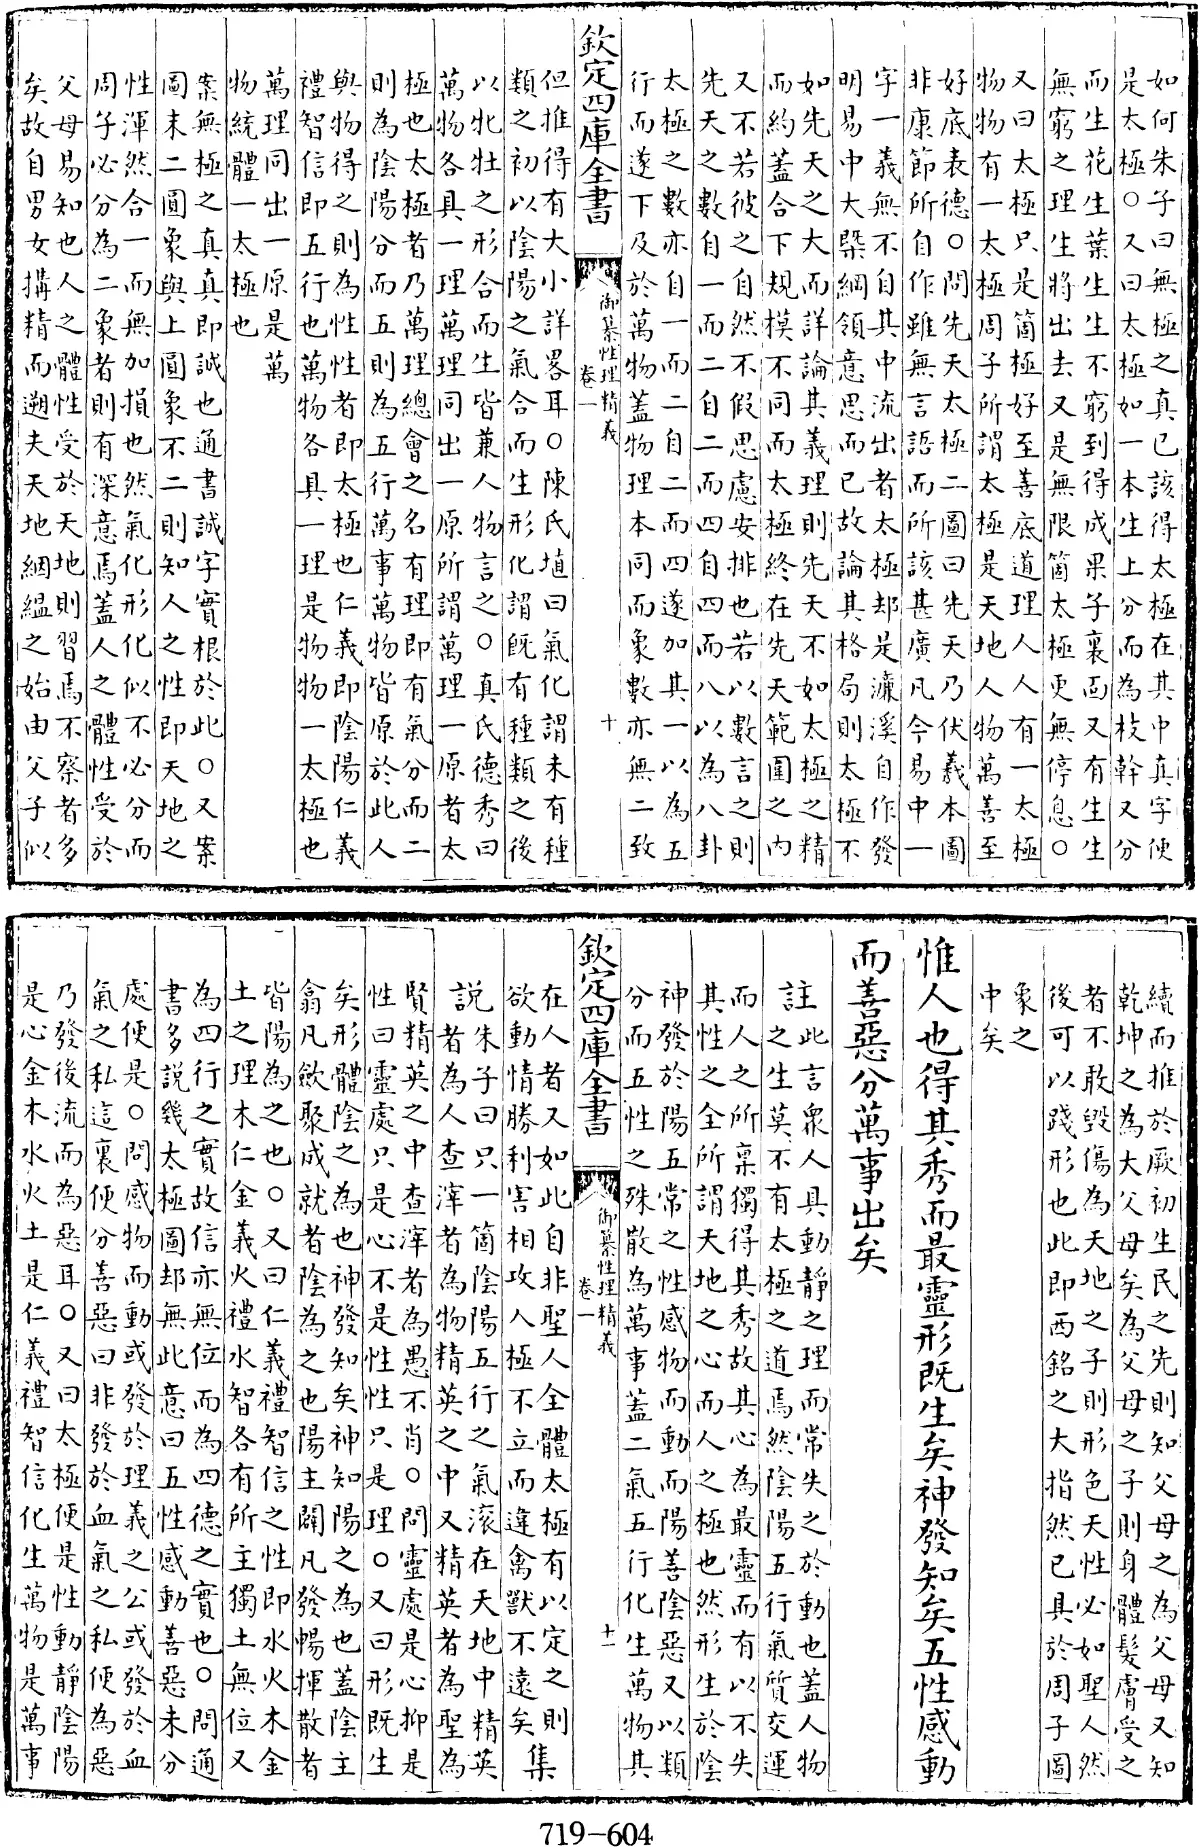 如何朱子曰無極之真已該得太極在其中真字便
是太極○又曰太極如一本生上分而為枝幹又分
而生花生葉生生不窮到得成果子裏面又有生生
無窮之理生將出去又是無限箇太極更無停息○
又曰太極只是箇極好至善底道理人人有一太極
物物有一太極周子所謂太極是天地人物萬善至
好底表德○問先天太極二圖曰先天乃伏羲本圖
非康節所自作雖無言語而所該甚廣凡今易中一
字一義無不自其中流出者太極却是濂溪自作發
明易中大槩綱領意思而已故論其格局則太極不
如先天之大而詳論其義理則先天不如太極之精
而約蓋合下規模不同而太極終在先天範圍之內
又不若彼之自然不假思慮安排也若以數言之則
先天之數自一而二自二而四自四而八以為八卦
太極之數亦自一而二自二而四遂加其一以為五
行而遂下及於萬物蓋物理本同而象數亦無二致
欽定四庫全書
御纂性理精義
卷一
十
但推得有大小詳畧耳○陳氏埴曰氣化謂未有種
類之初以陰陽之氣合而生形化謂既有種類之後
以牝牡之形合而生皆兼人物言之○真氏德秀曰
萬物各具一理萬理同出一原所謂萬理一原者太
極也太極者乃萬理總會之名有理即有氣分而二
則為陰陽分而五則為五行萬事萬物皆原於此人
與物得之則為性性者即太極也仁義即陰陽仁義
禮智信即五行也萬物各具一理是物物一太極也
萬理同出一原是萬
物統體一太極也
案無極之真真即誠也通書誠字實根於此○又案
圖末二圓象與上圓象不二則知人之性即天地之
性渾然合一而無加損也然氣化形化似不必分而
周子必分為二象者則有深意焉蓋人之體性受於
父母易知也人之體性受於天地則習焉不察者多
矣故自男女搆精而遡夫天地絪縕之始由父子似
續而推於厥初生民之先則知父母之為父母又知
乾坤之為大父母矣為父母之子則身體髮膚受之
者不敢毀傷為天地之子則形色天性必如聖人然
後可以踐形也此即西銘之大指然已具於周子圖
象之
中矣
惟人也得其秀而最靈形既生矣神發知矣五性感動
而善惡分萬事出矣
註此言眾人具動靜之理而常失之於動也蓋人物
之生莫不有太極之道焉然陰陽五行氣質交運
而人之所稟獨得其秀故其心為最靈而有以不失
其性之全所謂天地之心而人之極也然形生於陰
神發於陽五常之性感物而動而陽善陰惡又以類
分而五性之殊散為萬事蓋二氣五行化生萬物其
欽定四庫全書
御纂性理精義
卷一
十一
在人者又如此自非聖人全體太極有以定之則
欲動情勝利害相攻人極不立而違禽獸不遠矣集
說朱子曰只一箇陰陽五行之氣滾在天地中精英
者為人查滓者為物精英之中又精英者為聖為
賢精英之中查滓者為愚不肖○問靈處是心抑是
性曰靈處只是心不是性性只是理○又曰形既生
矣形體陰之為也神發知矣神知陽之為也蓋陰主
翕凡斂聚成就者陰為之也陽主闢凡發暢揮散者
皆陽為之也○又曰仁義禮智信之性即水火木金
土之理木仁金義火禮水智各有所主獨土無位又
為四行之實故信亦無位而為四德之實也○問通
書多說幾太極圖却無此意曰五性感動善惡未分
處便是○問感物而動或發於理義之公或發於血
氣之私這裏便分善惡曰非發於血氣之私便為惡
乃發後流而為惡耳○又曰太極便是性動靜陰陽
是心金木水火土是仁義禮智信化生萬物是萬事
719-604